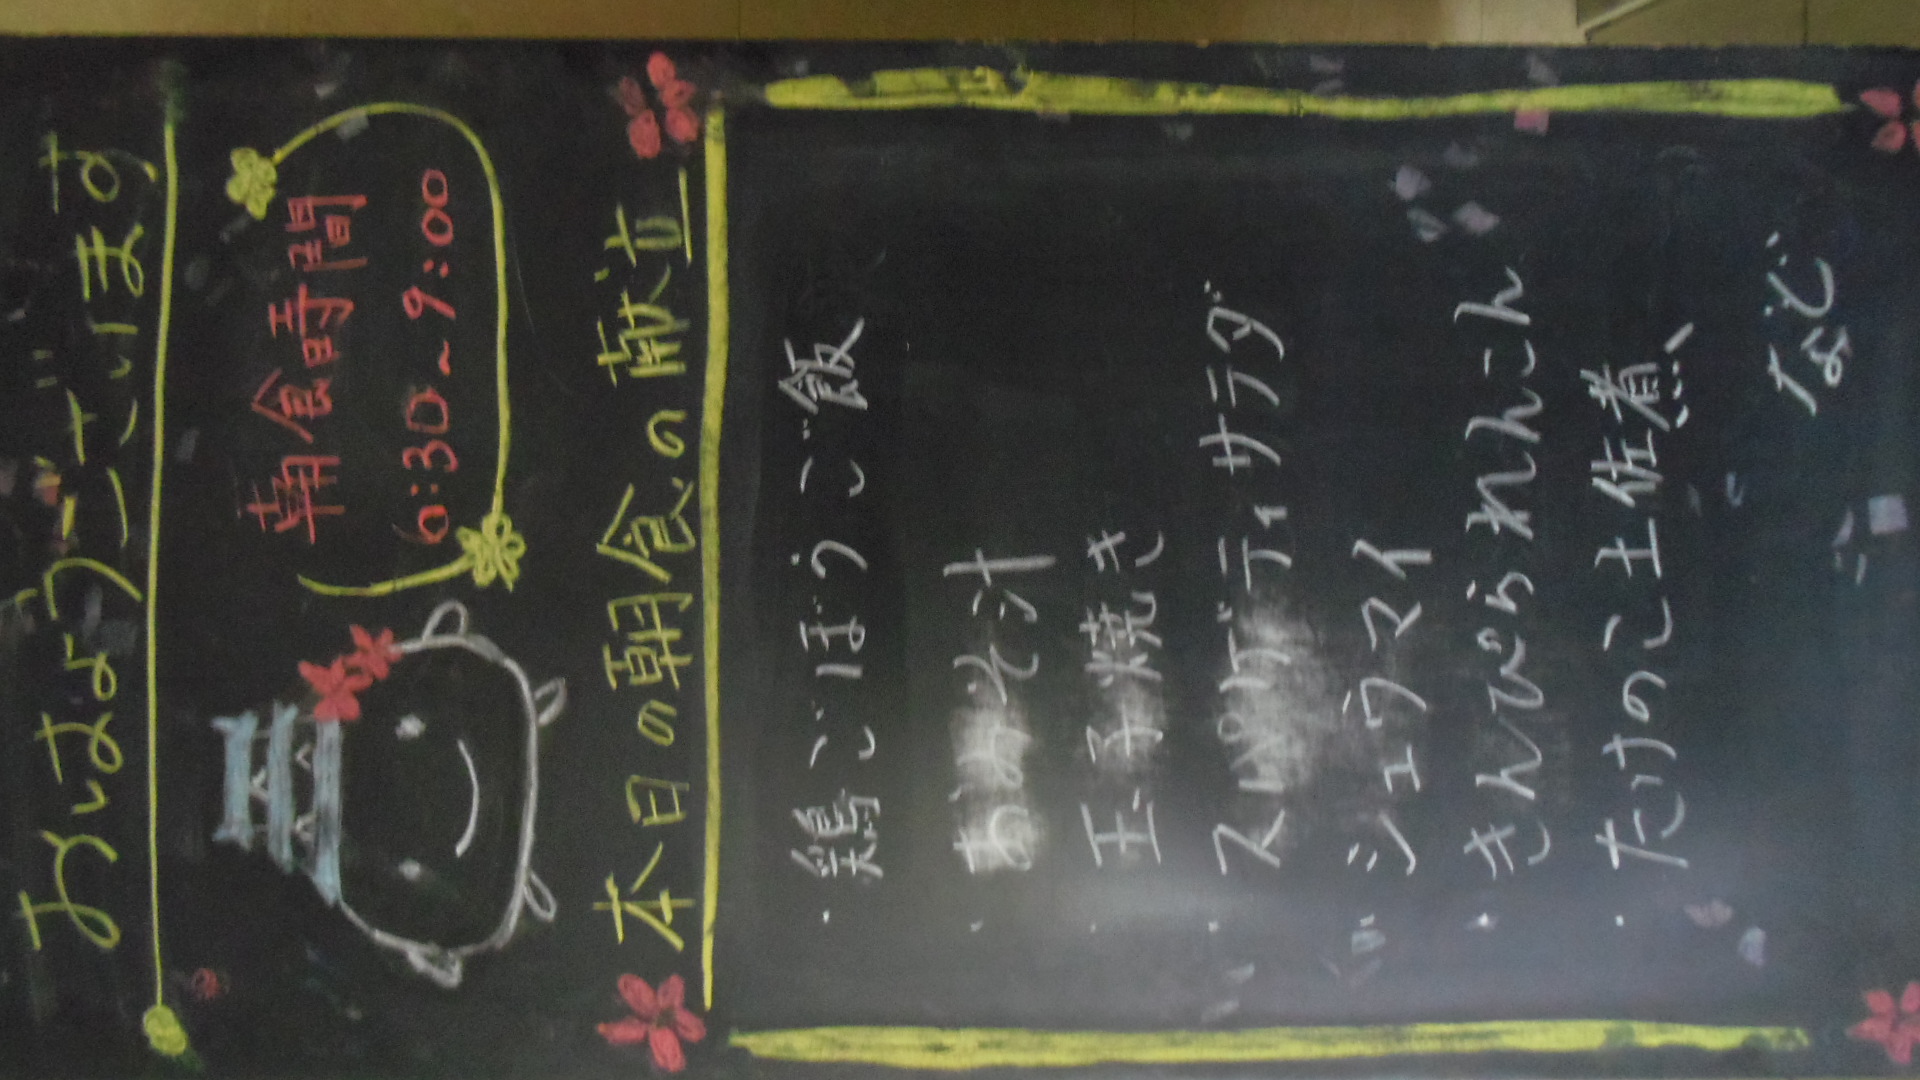 おはようございます
朝食時間
6:30~9:00
本日の朝食の献立
・鶏ごぼうご飯
・おみそ汁
・玉子焼き
・スパゲティサラダ
・シュウマイ
・きんぴられんこん
・たけのこ土佐煮
など